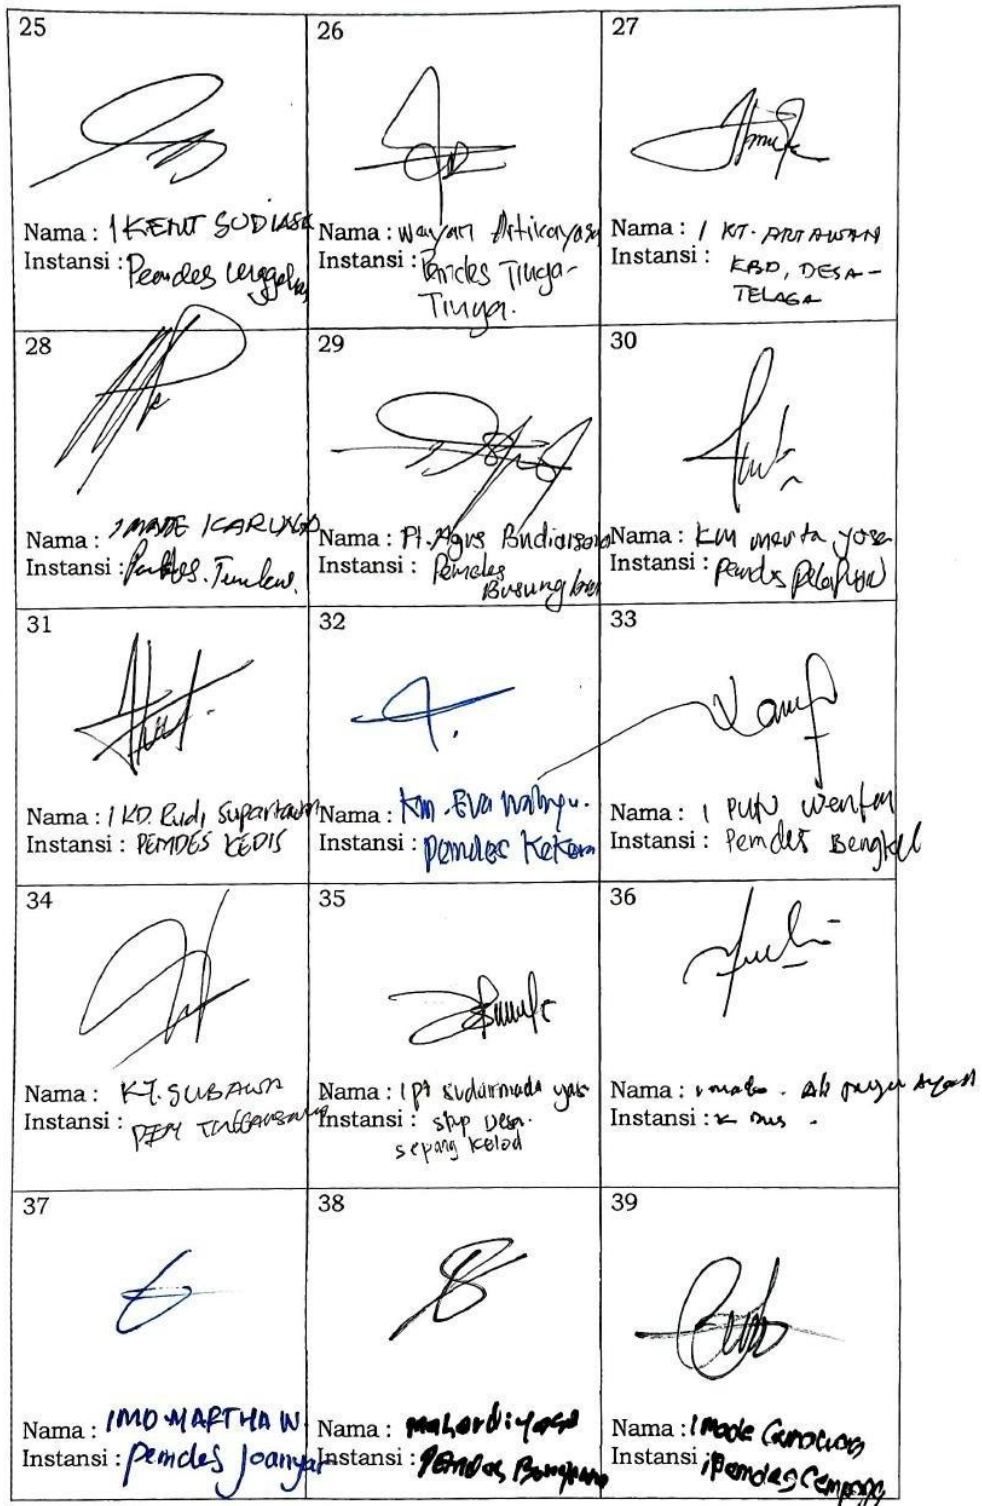 25
Nama : I KETUT SUDIASA
Instansi : Pemdes Unggahan
26
Nama : Wayan Artikayasa
Instansi : Pemdes Tinga-
Tinga.
27
Nama : I KT. ARTAWAN
Instansi : KBD, DESA-
TELAGA
28
Nama : I MADE KARUNGO
Instansi :
29
Nama : Pt. Agus Budiarsana
Instansi : Pemdes
Busungbiu
30
Nama : KM merta yosa
Instansi : Pemdes Pelapuan
31
Nama : I KD. Rudi Supartawan
Instansi : PEMDES KEDIS
32
Nama : Km. Eva Wahyu.
Instansi : Pemdes Kekeran
33
Nama : I PUTU Wenten
Instansi : Pemdes Bengkel
34
Nama : KT. SUBAWA
Instansi : PEM TINGGARSARI
35
Nama : I Pt Sudarmada yas
Instansi : Desa.
sepang kelod
36
Nama :
Instansi :
37
Nama : I MD. MARTHA W
Instansi : Pemdes Joanyar
38
Nama : Mahardiyasa
Instansi : Pemdes
39
Nama : I Made
Instansi : Pemdes Cempaga